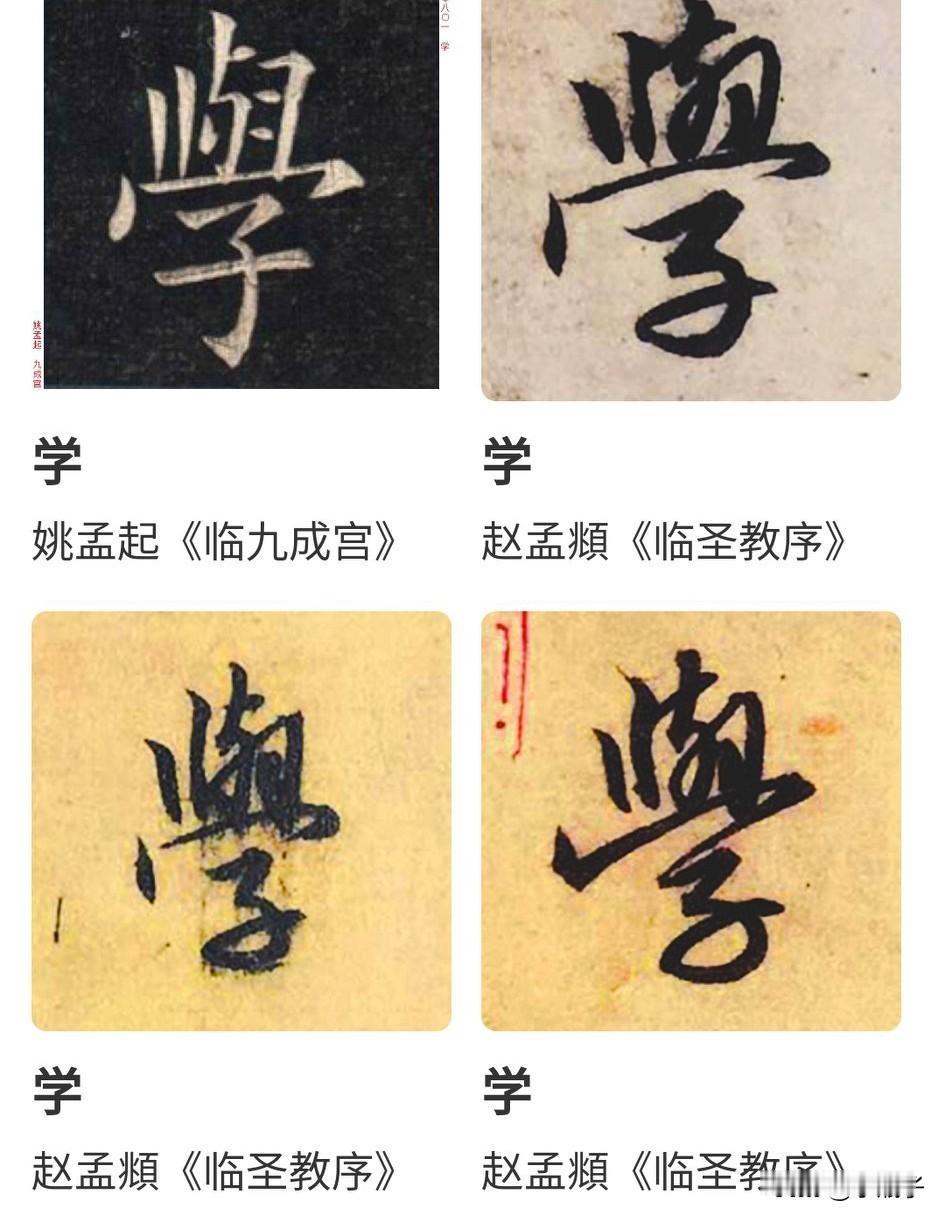 學
學
学
学
姚孟起《临九成宫》
赵孟頫《临圣教序》
學
學
学
学
赵孟頫《临圣教序》
赵孟頫《临圣教序》
姚孟起 九成宫